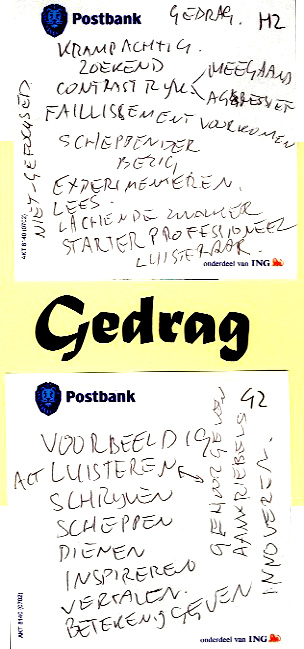 Postbank
GEDRAG. H2
KRAMPACHTIG.
ZOEKEND
CONTRASTRIJK MEEGAAND
AGRESSIEF
FAILLISSEMENT VOORKOMEN
SCHEPPENDER
BEZIG
EXPERIMENTEREN.
LEES.
LACHENDE ZWOEGER
STARTER PROFESSIONEEL
LUISTERAAR.
NIET-GEFOCUSED
AKT 8140 (0702)
onderdeel van ING
Gedrag
Postbank
G2
VOORBEELDIG
ACT LUISTEREN
SCHRIJVEN
SCHEPPEN
DIENEN
INSPIREREN
VERTALEN.
BETEKENIS GEVEN
GEHOOR GEVEN
INNOVEREN.
AKT 8140 (0702)
onderdeel van ING